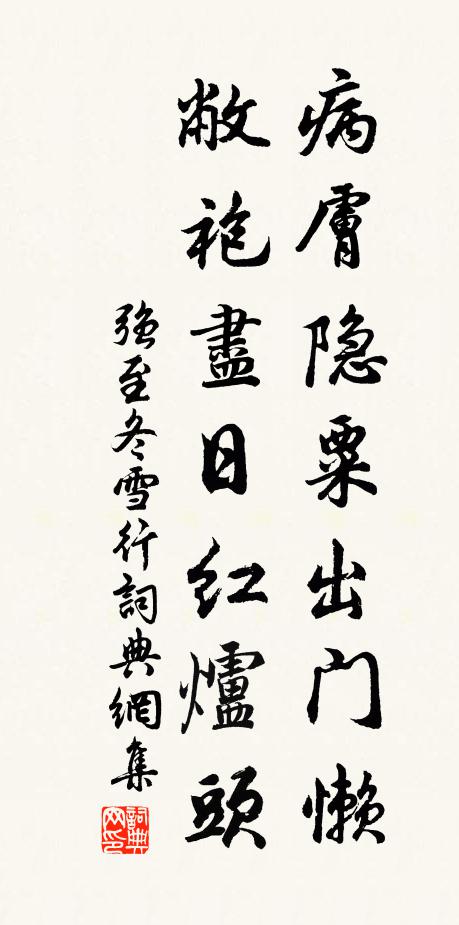 病膚隐粟出门懒
敝袍盡日红爐頭
强至冬雪行詞典網集
詞典网印